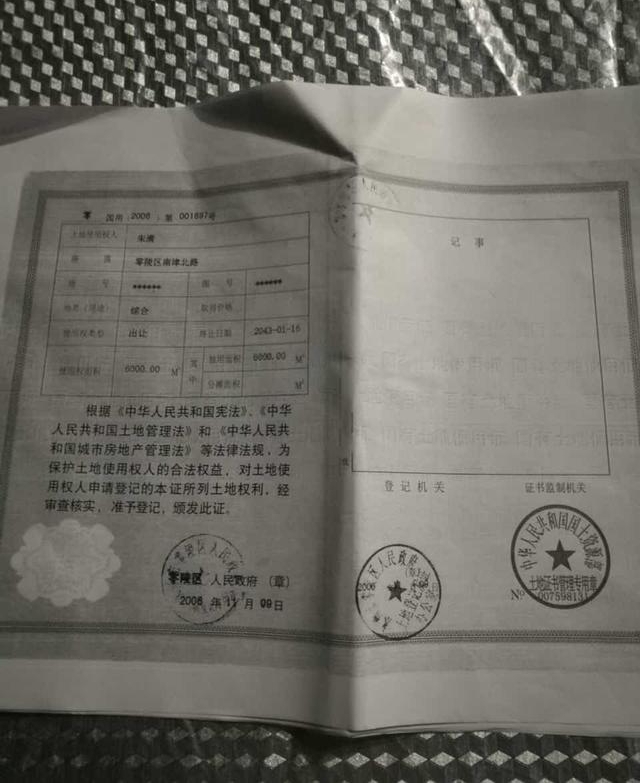 零 国用 2006 第 001697号
土地使用权人 朱
座落 零陵区南津北路
地号 ****** 图号 ******
地类(用途) 综合 取得价格
使用权类型 出让 终止日期 2043-01-16
使用权面积 6000.00 M² 其中 独用面积 6000.00 M²
分摊面积 M²
根据《中华人民共和国宪法》、《中华
人民共和国土地管理法》和《中华人民共
和国城市房地产管理法》等法律法规,为
保护土地使用权人的合法权益,对土地使
用权人申请登记的本证所列土地权利,经
审查核实,准予登记,颁发此证。
零陵区 人民政府 (章)
2006 年 11 月 09 日
记事
登记机关
证书监制机关
零陵区人民政府
土地登记
中华人民共和国国土资源部
土地证书管理专用章
Nº 007598131